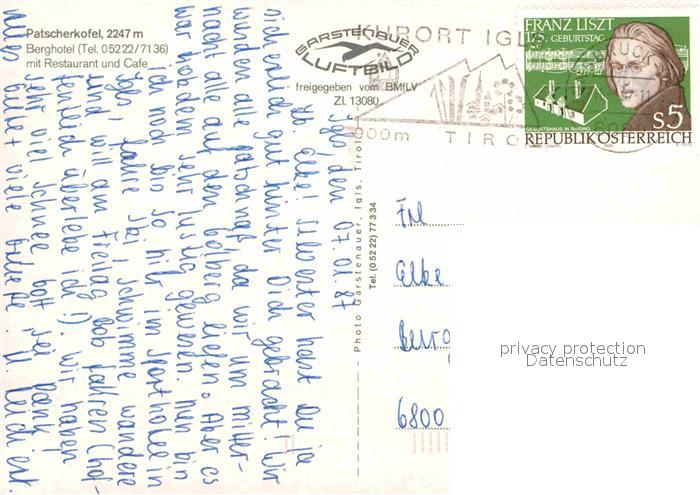 Patscherkofel, 2247 m
Berghotel (Tel. 05222/7136)
mit Restaurant und Cafe
GARSTENAUER
LUFTBILD
freigegeben vom BMfLV
Zl. 13080
KURORT IGLS
000m TIRO
FRANZ LISZT
175. GEBURTSTAG
GEBURTSHAUS IN RAIDING
s5
REPUBLIK ÖSTERREICH
Igls, den 07.01.87
Elke! Silvester hast Du ja
sicherlich gut hinter Dich gebracht! Wir
wurden alle patschnaß da wir um mitter-
nacht alle auf den liefen. Aber es
war trotzdem sehr lustig gewesen. Nun bin
ich noch bis 50 hier im Sporthotel in
Igls. Fahre Ski, schwimme, wandere
und will am Freitag Bob fahren (hof-
fentlich überlebe ich!). Wir haben
sehr viel Schnee, Gott sei Dank.
Alles Gute + viele Grüße!
Photo Garstenauer, Igls, Tirol
Tel. (05222) 77334
Frl
Elke
6800
privacy protection
Datenschutz